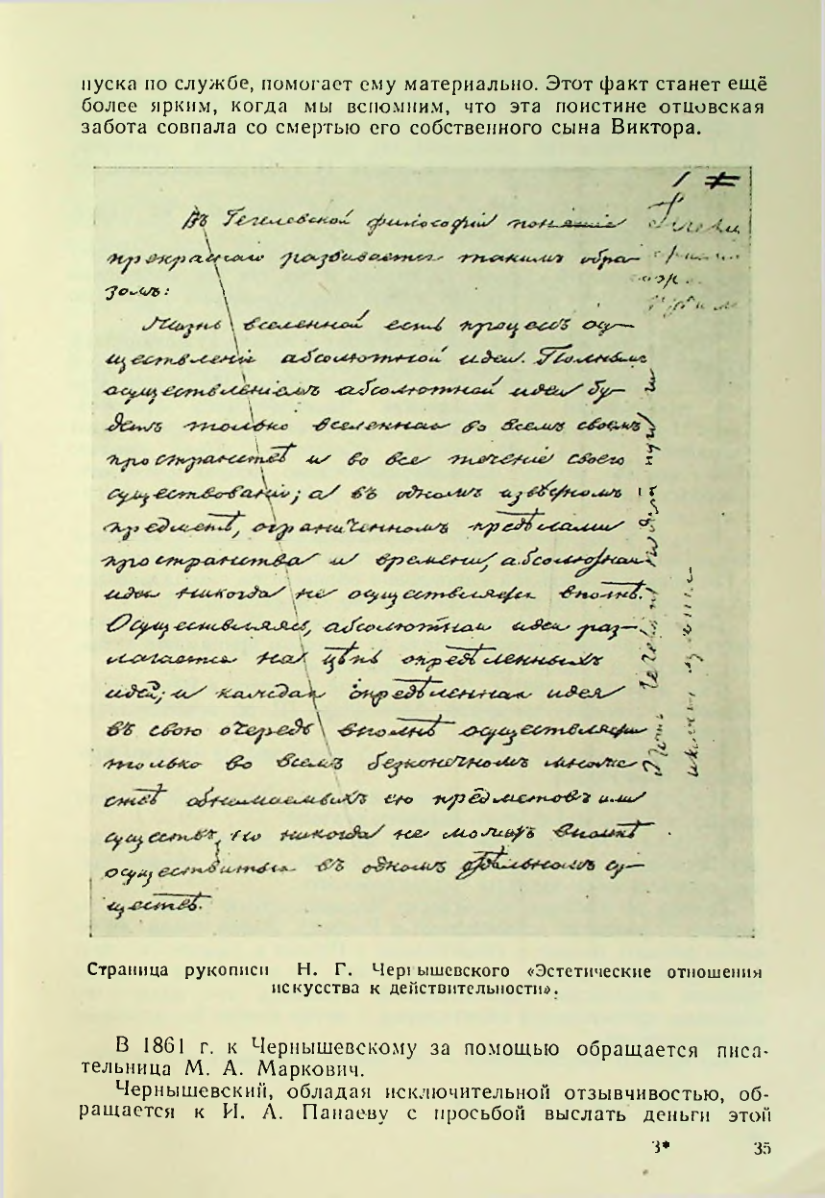 пуска по службе, помогает ему материально. Этот факт станет ещё
более ярким, когда мы вспомним, что эта поистине отцовская
забота совпала со смертью его собственного сына Виктора.
1
Въ Гегелевской философіи понятіе
прекраснаго развивается такимъ обра-
зомъ:
Жизнь вселенной есть процессъ осу-
ществленія абсолютной идеи. Полнымъ
осуществленіемъ абсолютной идеи бу-
детъ только вселенная во всемъ своемъ
пространствѣ и во все теченіе своего
существованія; а въ одномъ извѣстномъ
предметѣ, ограниченномъ предѣлами
пространства и времени, абсолютная
идея никогда не осуществляется вполнѣ.
Осуществляясь, абсолютная идея раз-
лагается на цѣпь опредѣленныхъ
идей; и каждая опредѣленная идея
въ свою очередь вполнѣ осуществляется
только во всемъ безконечномъ множе
ствѣ обнимаемыхъ ею предметовъ или
существъ, но никогда не можетъ вполнѣ
осуществиться въ одномъ отдѣльномъ су-
ществѣ.
Страница рукописи Н. Г. Чернышевского «Эстетические отношения
искусства к действительности».
В 1861 г. к Чернышевскому за помощью обращается писа-
тельница М. А. Маркович.
Чернышевский, обладая исключительной отзывчивостью, об-
ращается к И. А. Панаеву с просьбой выслать деньги этой
3* 35